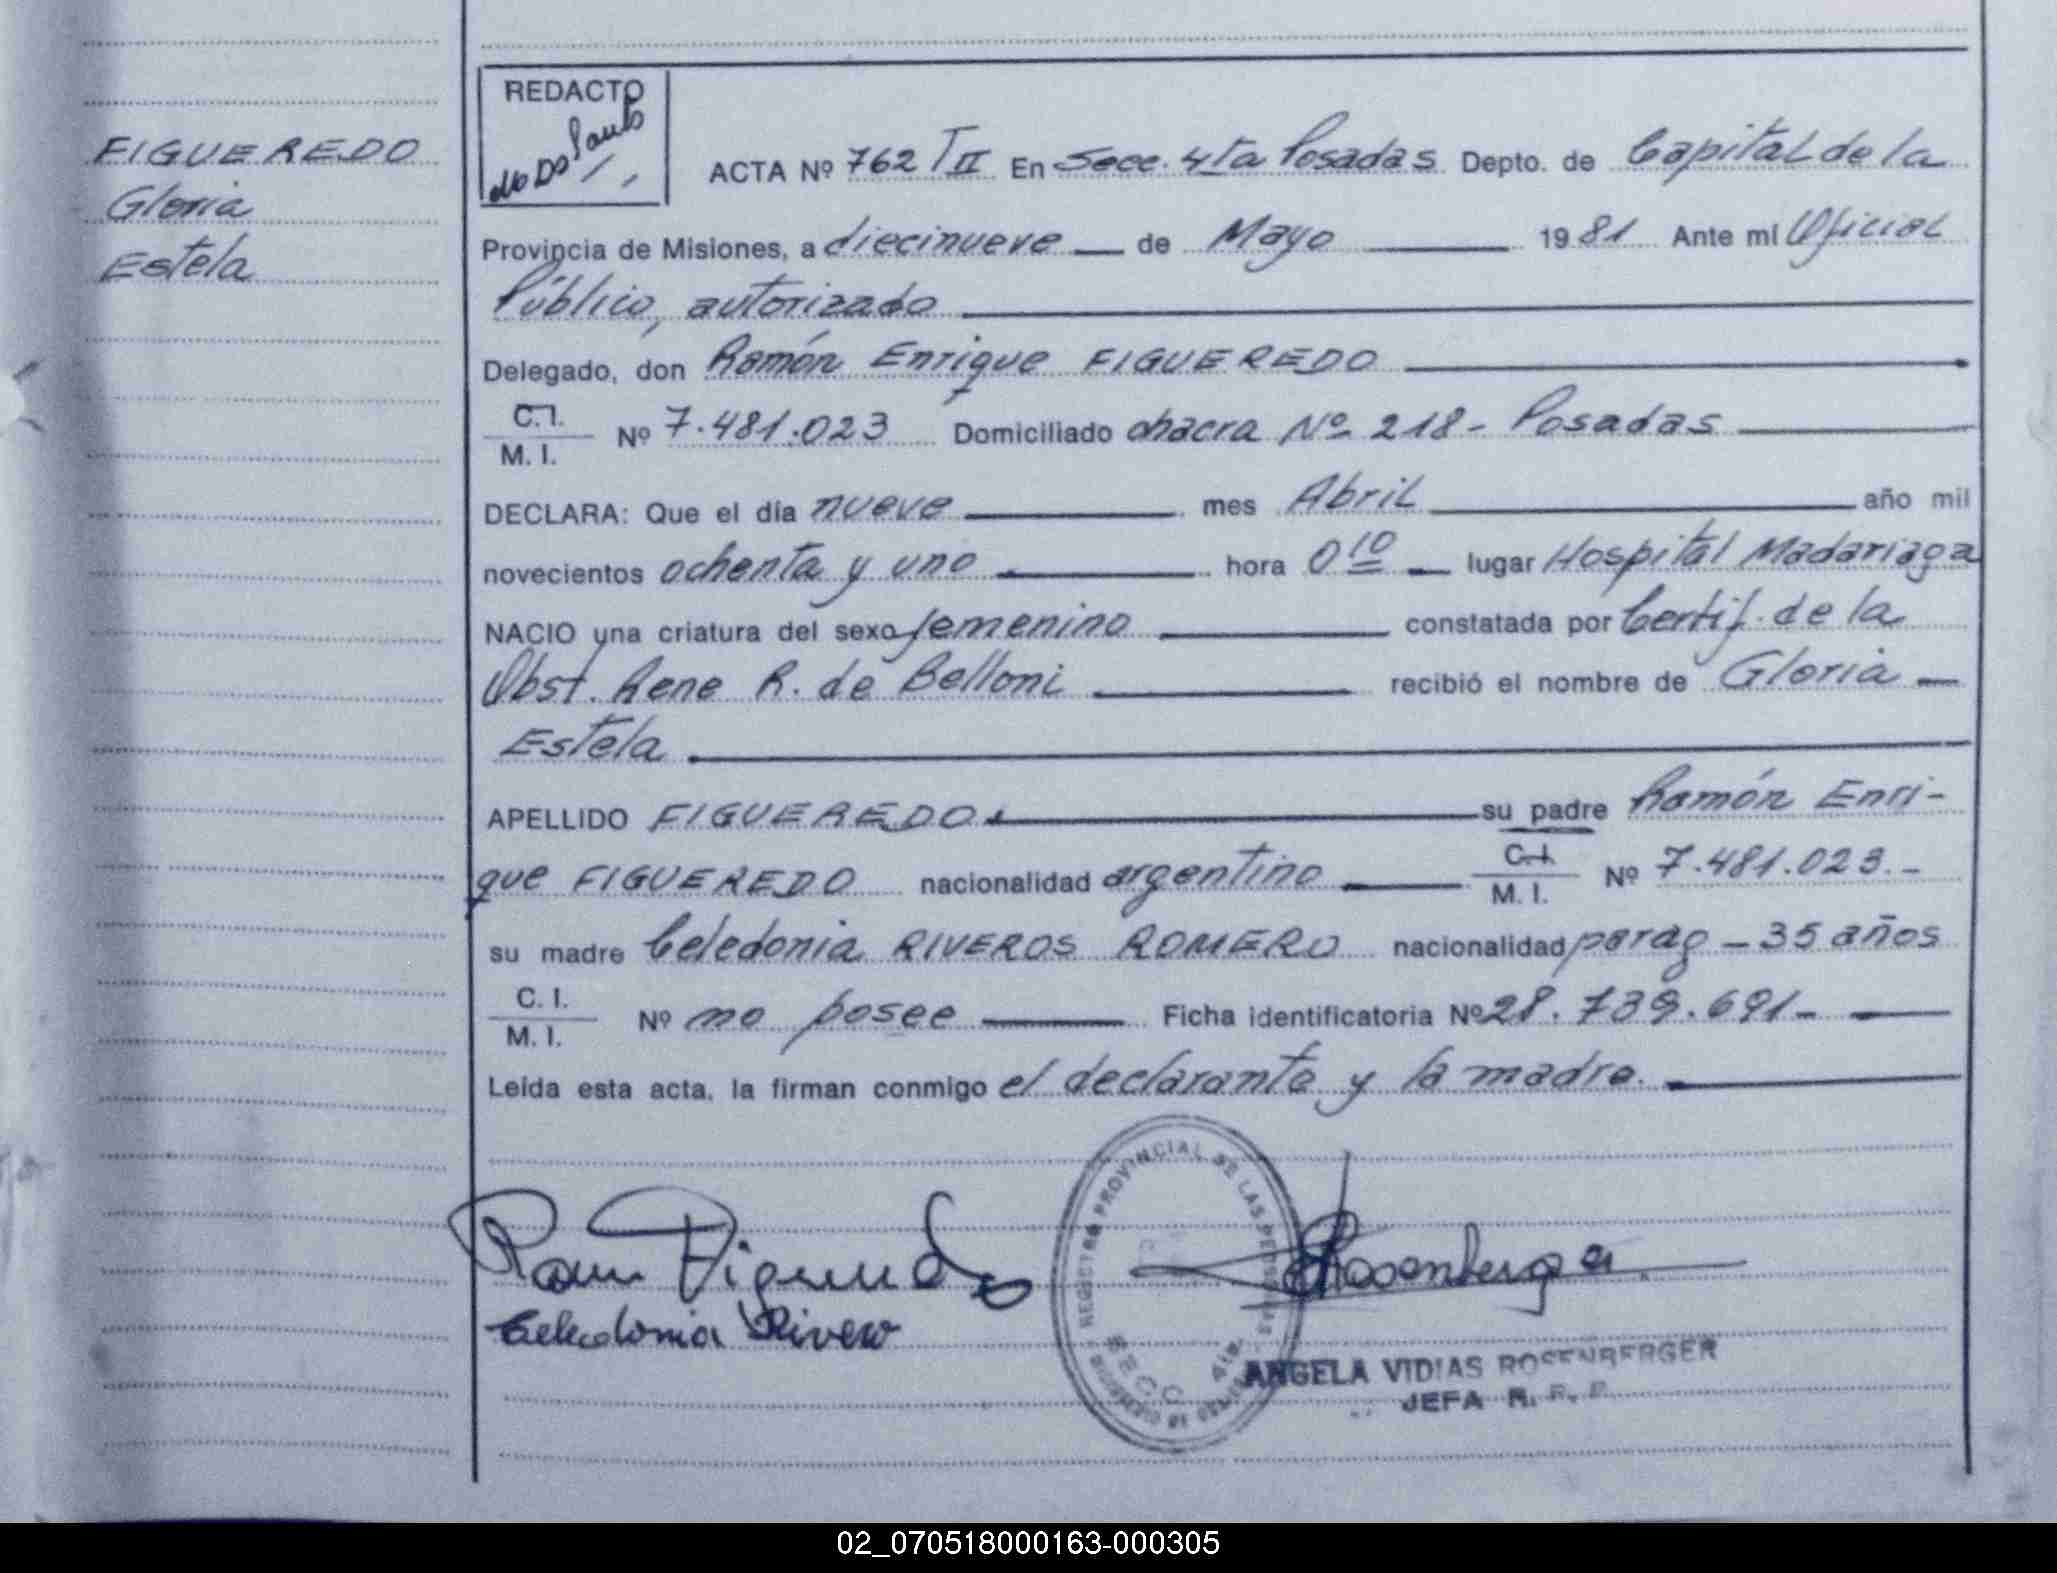 FIGUEREDO
Gloria
Estela
REDACTO
ACTA Nº 762 T II En Secc. 4ta Posadas Depto. de Capital de la
Provincia de Misiones, a diecinueve de Mayo 1981 Ante mí Oficial
Público, autorizado
Delegado, don Ramón Enrique FIGUEREDO
C.I.
M. I. Nº 7.481.023 Domiciliado chacra Nº 218- Posadas
DECLARA: Que el día nueve mes Abril año mil
novecientos ochenta y uno hora 0 10 lugar Hospital Madariaga
NACIO una criatura del sexo femenino constatada por Certif. de la
Obst. Rene R. de Belloni recibió el nombre de Gloria
Estela
APELLIDO FIGUEREDO su padre Ramón Enri-
que FIGUEREDO nacionalidad argentino C.I. M. I. Nº 7.481.023.-
su madre Celedonia RIVEROS ROMERO nacionalidad parag - 35 años
C. I.
M. I. Nº no posee Ficha identificatoria Nº 28.739.691-
Leída esta acta, la firman conmigo el declarante y la madre.
REGISTRO PROVINCIAL DE LAS PERSONAS
SECC. 4ta.
Celedonia Rivero
Rosenberger
ANGELA VIDIAS ROSENBERGER
JEFA R. R. P.
02_070518000163-000305